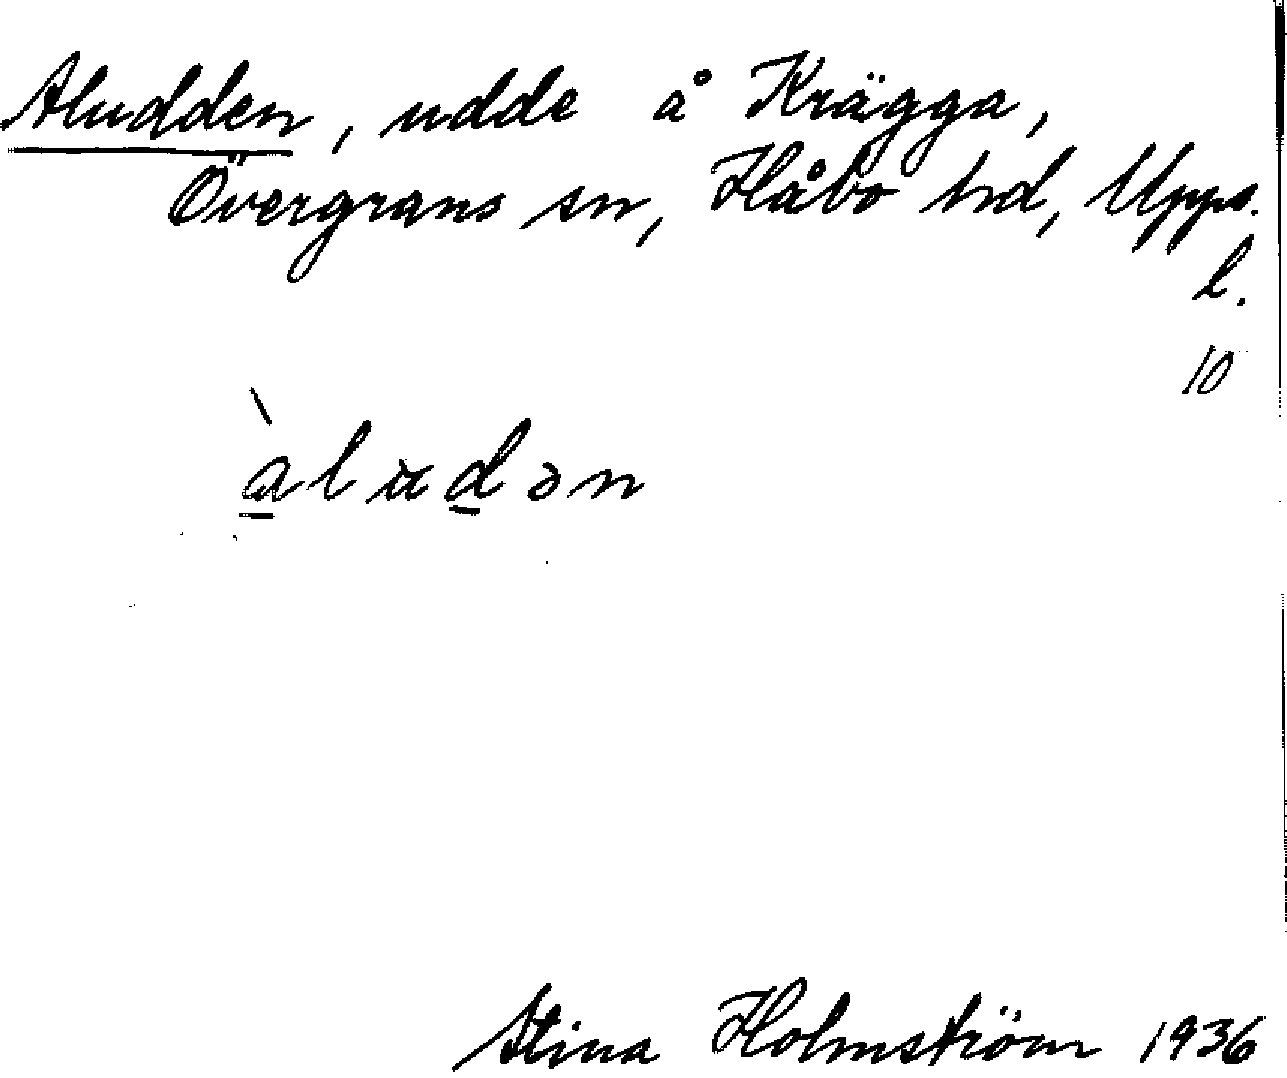 Aludden, udde å Krägga,
Övergrans sn, Håbo hd, Upps.
l.
10
àlu̇dən
Stina Holmström 1936